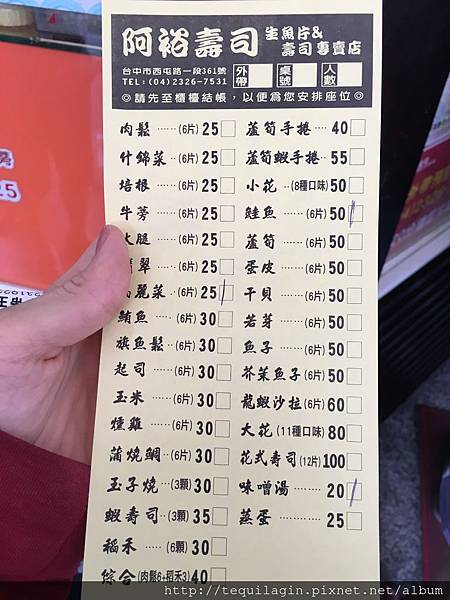 阿裕壽司
生魚片&
壽司專賣店
台中市西屯路一段361號
TEL:(04)2326-7531
外帶
桌號
人數
◎請先至櫃檯結帳，以便為您安排座位◎
肉鬆······(6片)25
什錦菜··(6片)25
培根······(6片)25
牛蒡······(6片)25
火腿······(6片)25
翠······(6片)25
麗菜··(6片)25
鮪魚······(6片)30
旗魚鬆··(6片)30
起司······(6片)30
玉米······(6片)30
燻雞······(6片)30
蒲燒鯛··(6片)30
玉子燒···(3顆)30
蝦壽司··(3顆)35
稻禾······(6顆)30
綜合(肉鬆6+稻禾3)40
蘆筍手捲····40
蘆筍蝦手捲··55
小花··(8種口味)50
鮭魚······(6片)50
蘆筍······(6片)50
蛋皮······(6片)50
干貝······(6片)50
若芽······(6片)50
魚子······(6片)50
芥茉魚子(6片)50
龍蝦沙拉(6片)60
大花(11種口味)80
花式壽司(12片)100
味噌湯········20
蒸蛋··········25
http://tequilagin.pixnet.net/album